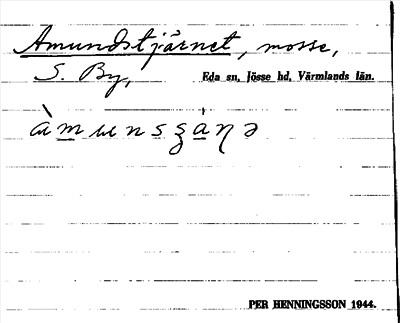 Amundstjärnet, mosse,
S. By, Eda sn, Jösse hd, Värmlands län.
àmunsʒanə
PER HENNINGSSON 1944.